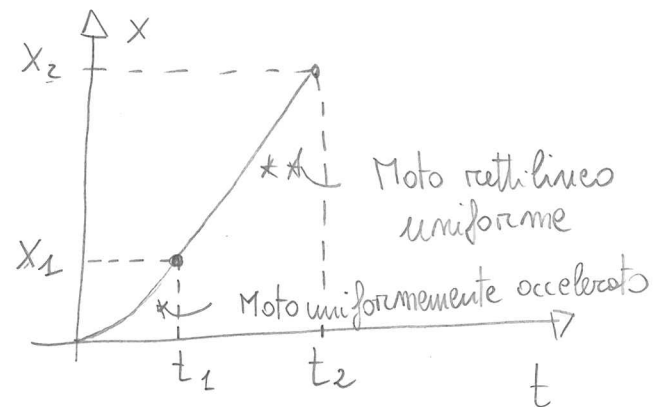 x
x₂
** Moto rettilineo
uniforme
x₁
* Moto uniformemente accelerato
t₁ t₂
t